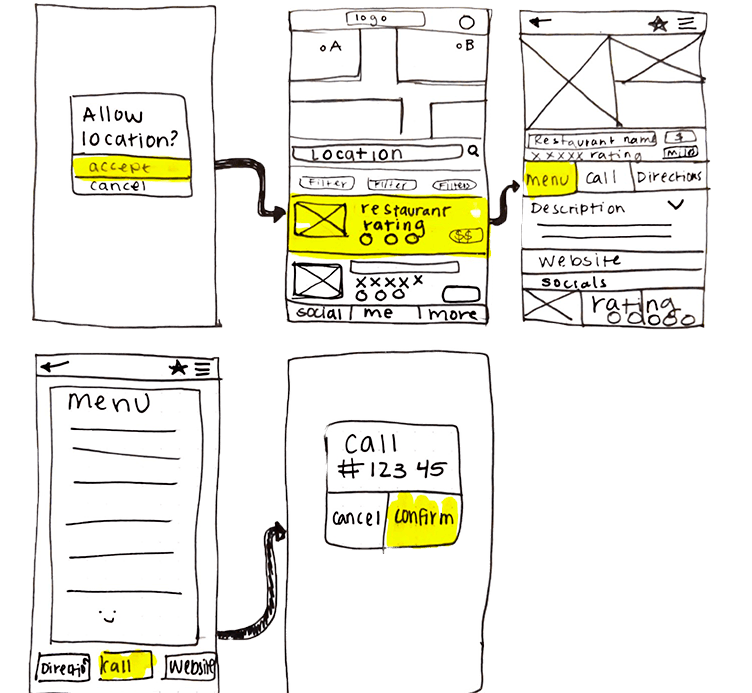 Allow
location?
accept
cancel
logo
A
B
Location
Filter Filter Filters
restaurant
rating
$$
xxxxx
social me more
Restaurant name $
xxxxx rating mile
menu call Directions
Description
Website
socials
rating
menu
Directio call Website
call
#123 45
cancel confirm